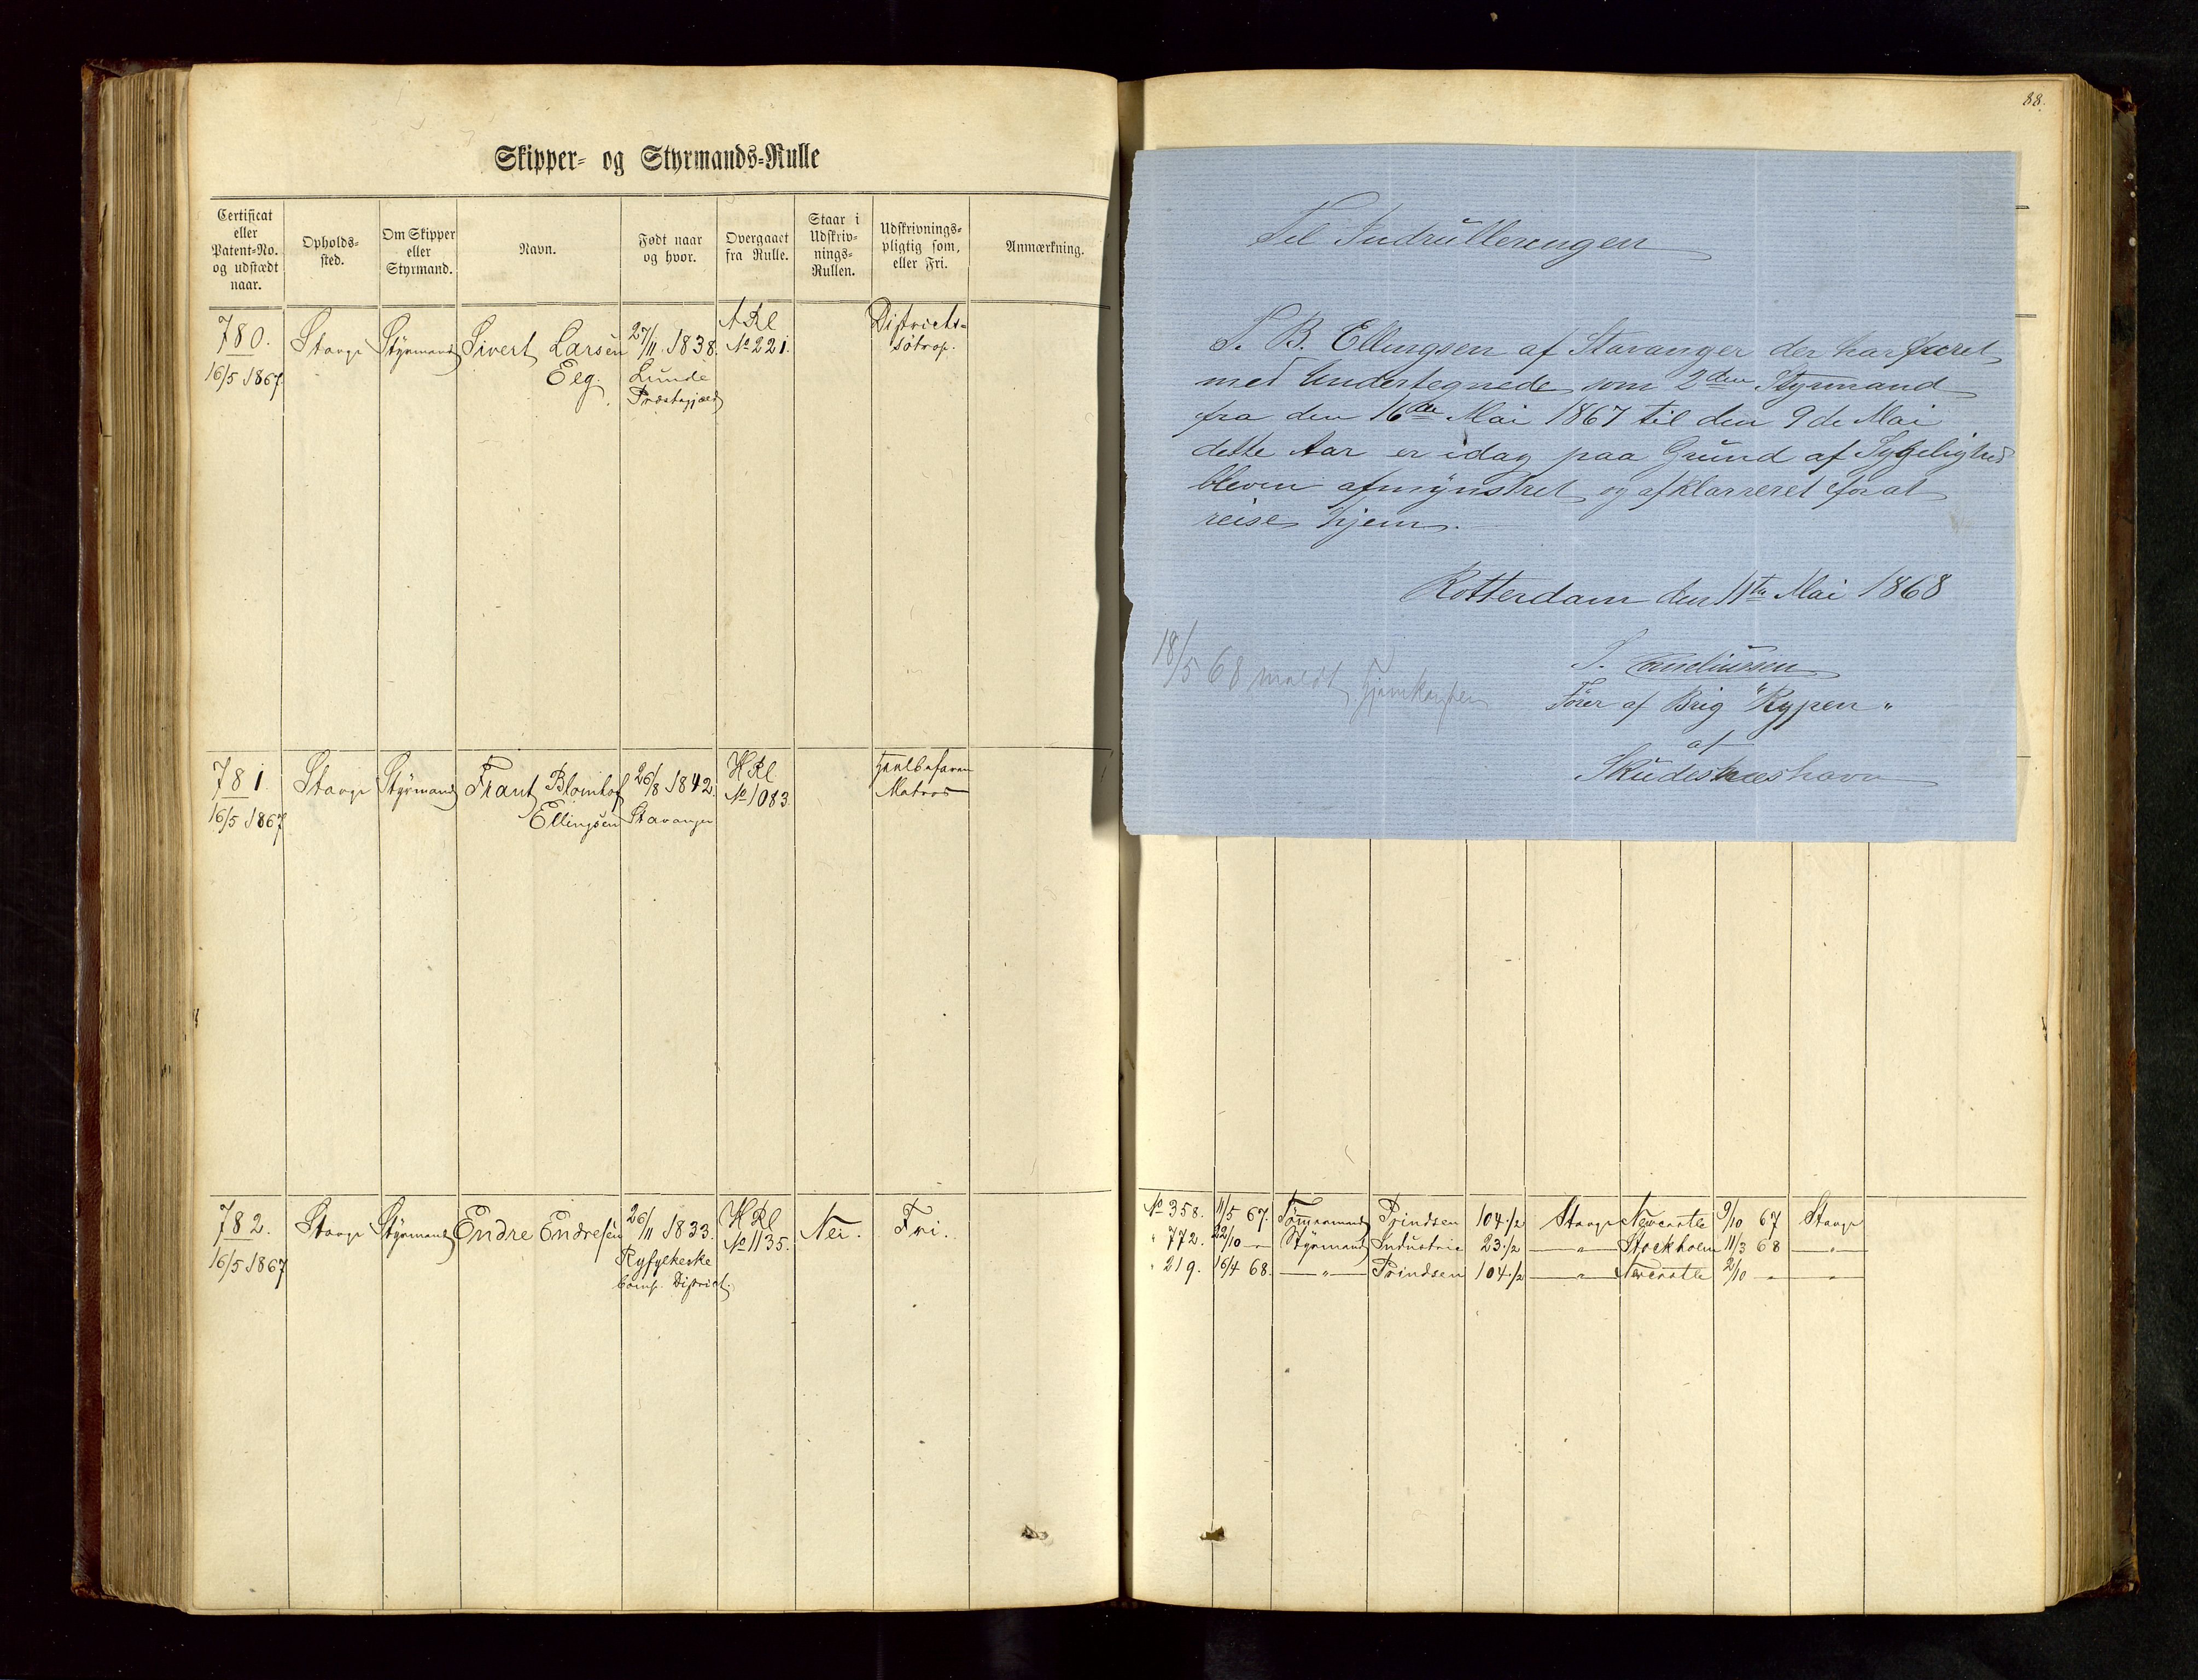 88.
Skipper- og Styrmands-Rulle
Certificat eller Patent-No. og udstædt naar.
Opholds-sted.
Om Skipper eller Styrmand.
Navn.
Født naar og hvor.
Overgaaet fra Rulle.
Staar i Udskriv-nings-Rullen.
Udskrivnings-pligtig som, eller Fri.
Anmærkning.
780. Stavgr Styrmand Sivert Larsen 27/11 1838. ARl Districts-
16/5 1867 Eeg. Lunde No 221.
Præstegjæld
781. Stavgr Styrmand Frant Blomhof 26/8 1842. HRl
16/5 1867 Ellingsen Stavanger No 1083. Matros
782. Stavgr Styrmand Endre Endresen 26/11 1833. HRl Nei. Fri.
16/5 1867 Ryfylkeske No 1135.
District.
Til Indrulleringen
B. Ellingsen af Stavanger der har faret
med Undertegnede som 2den Styrmand
fra den 16de Mai 1867 til den 9de Mai
dette Aar er idag paa Grund af Sygelighed
bleven afmynstret og afklarieret for at
reise hjem.
Rotterdam den 11te Mai 1868
18/5 68 meldt Hjemkomsten
Fører af Brig "Rypen"
af
Skudesnæshavn
No 358. 11/5 67. Tømmermand Prindsen 104 1/2 Stavgr Newcastle 9/10 67 Stavgr
" 772. 22/10 — Styrmand Industrie 23 1/2 —"— Stockholm 11/3 68 —"—
" 219. 16/4 68. —"— Prindsen 104 1/2 —"— Newcastle 2/10 —"— —"—